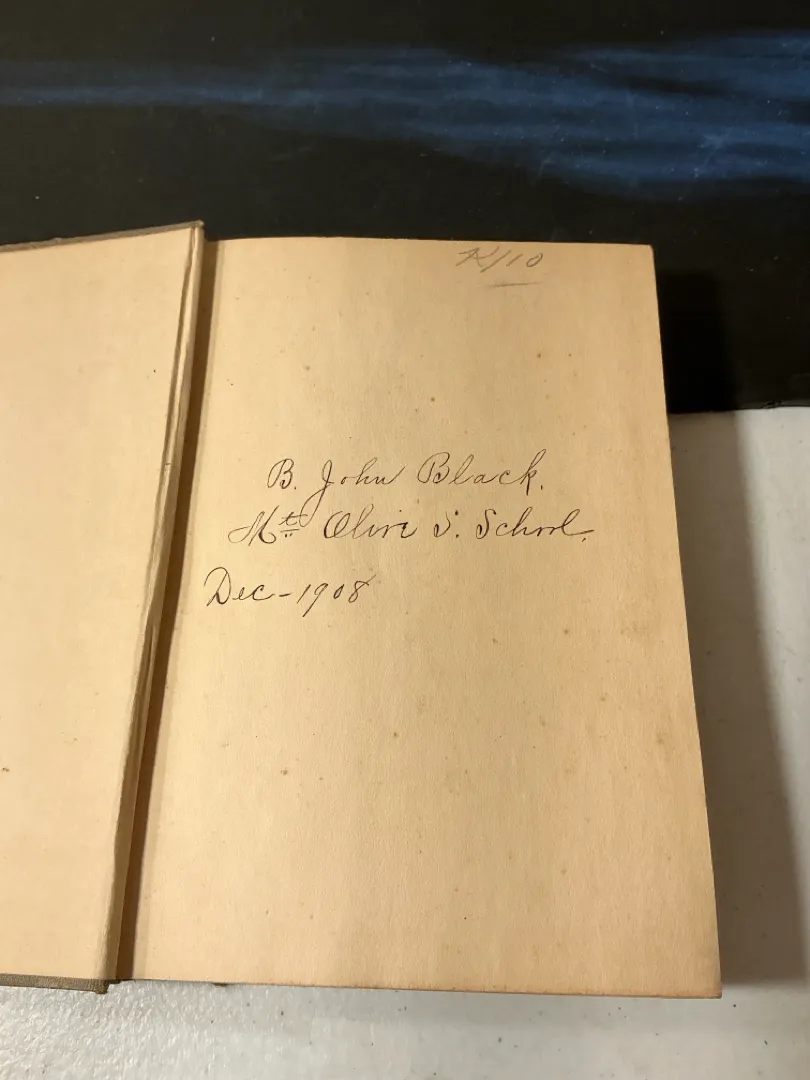 K/10
B. John Black.
Mt Olive S. School.
Dec-1908